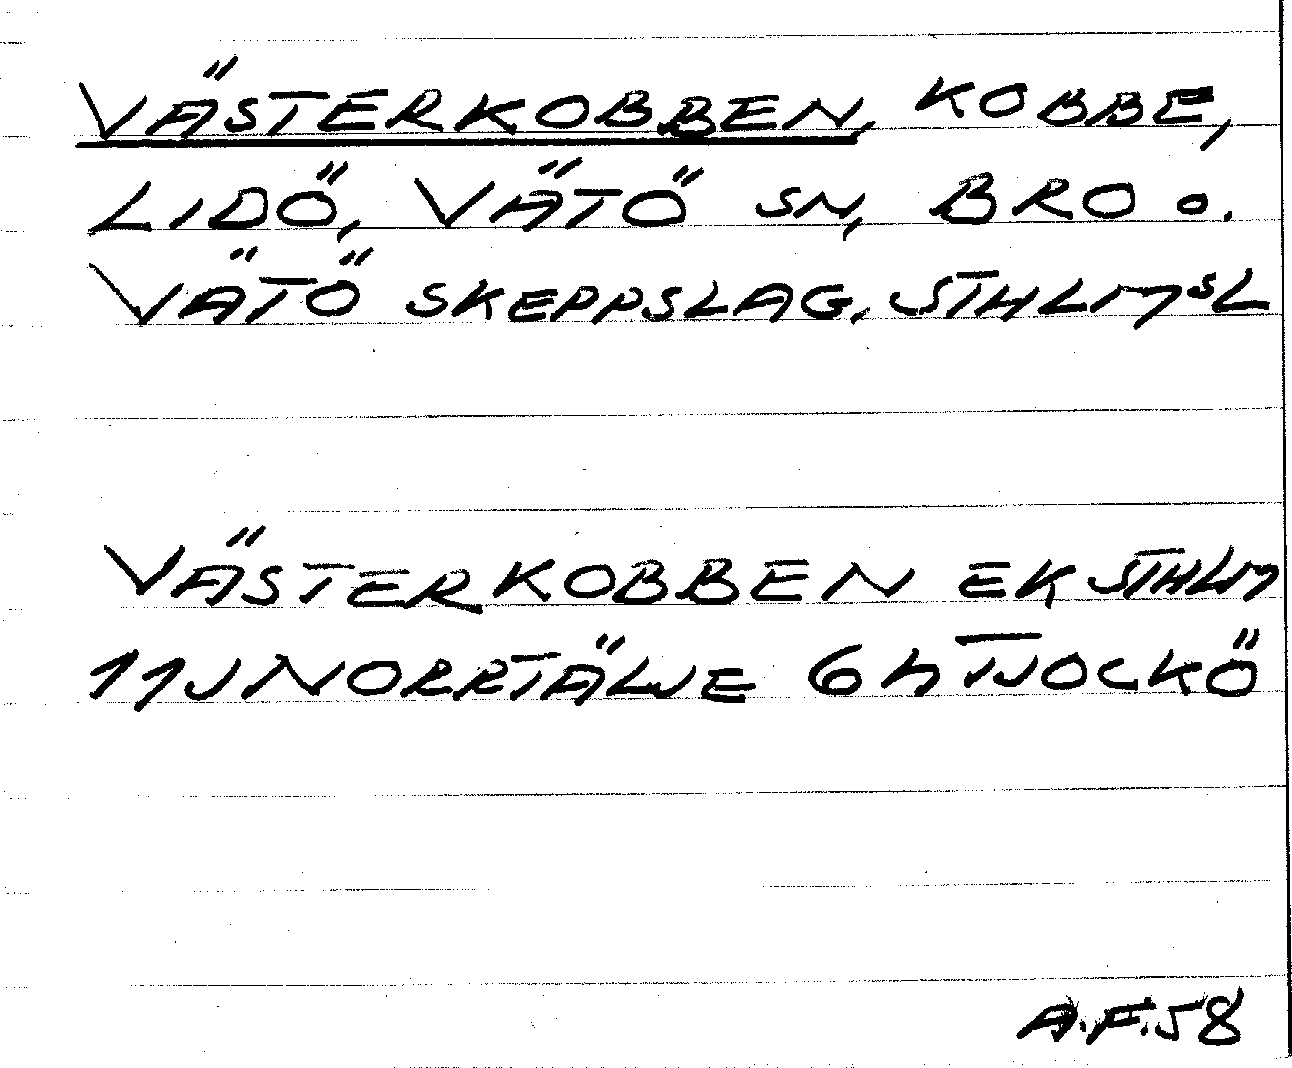 VÄSTERKOBBEN, KOBBE,
LIDÖ, VÄTÖ SN, BRO o.
VÄTÖ SKEPPSLAG, STHLMSL
VÄSTERKOBBEN EK STHLM
11J NORRTÄLJE 6h TJOCKÖ
A.F.58